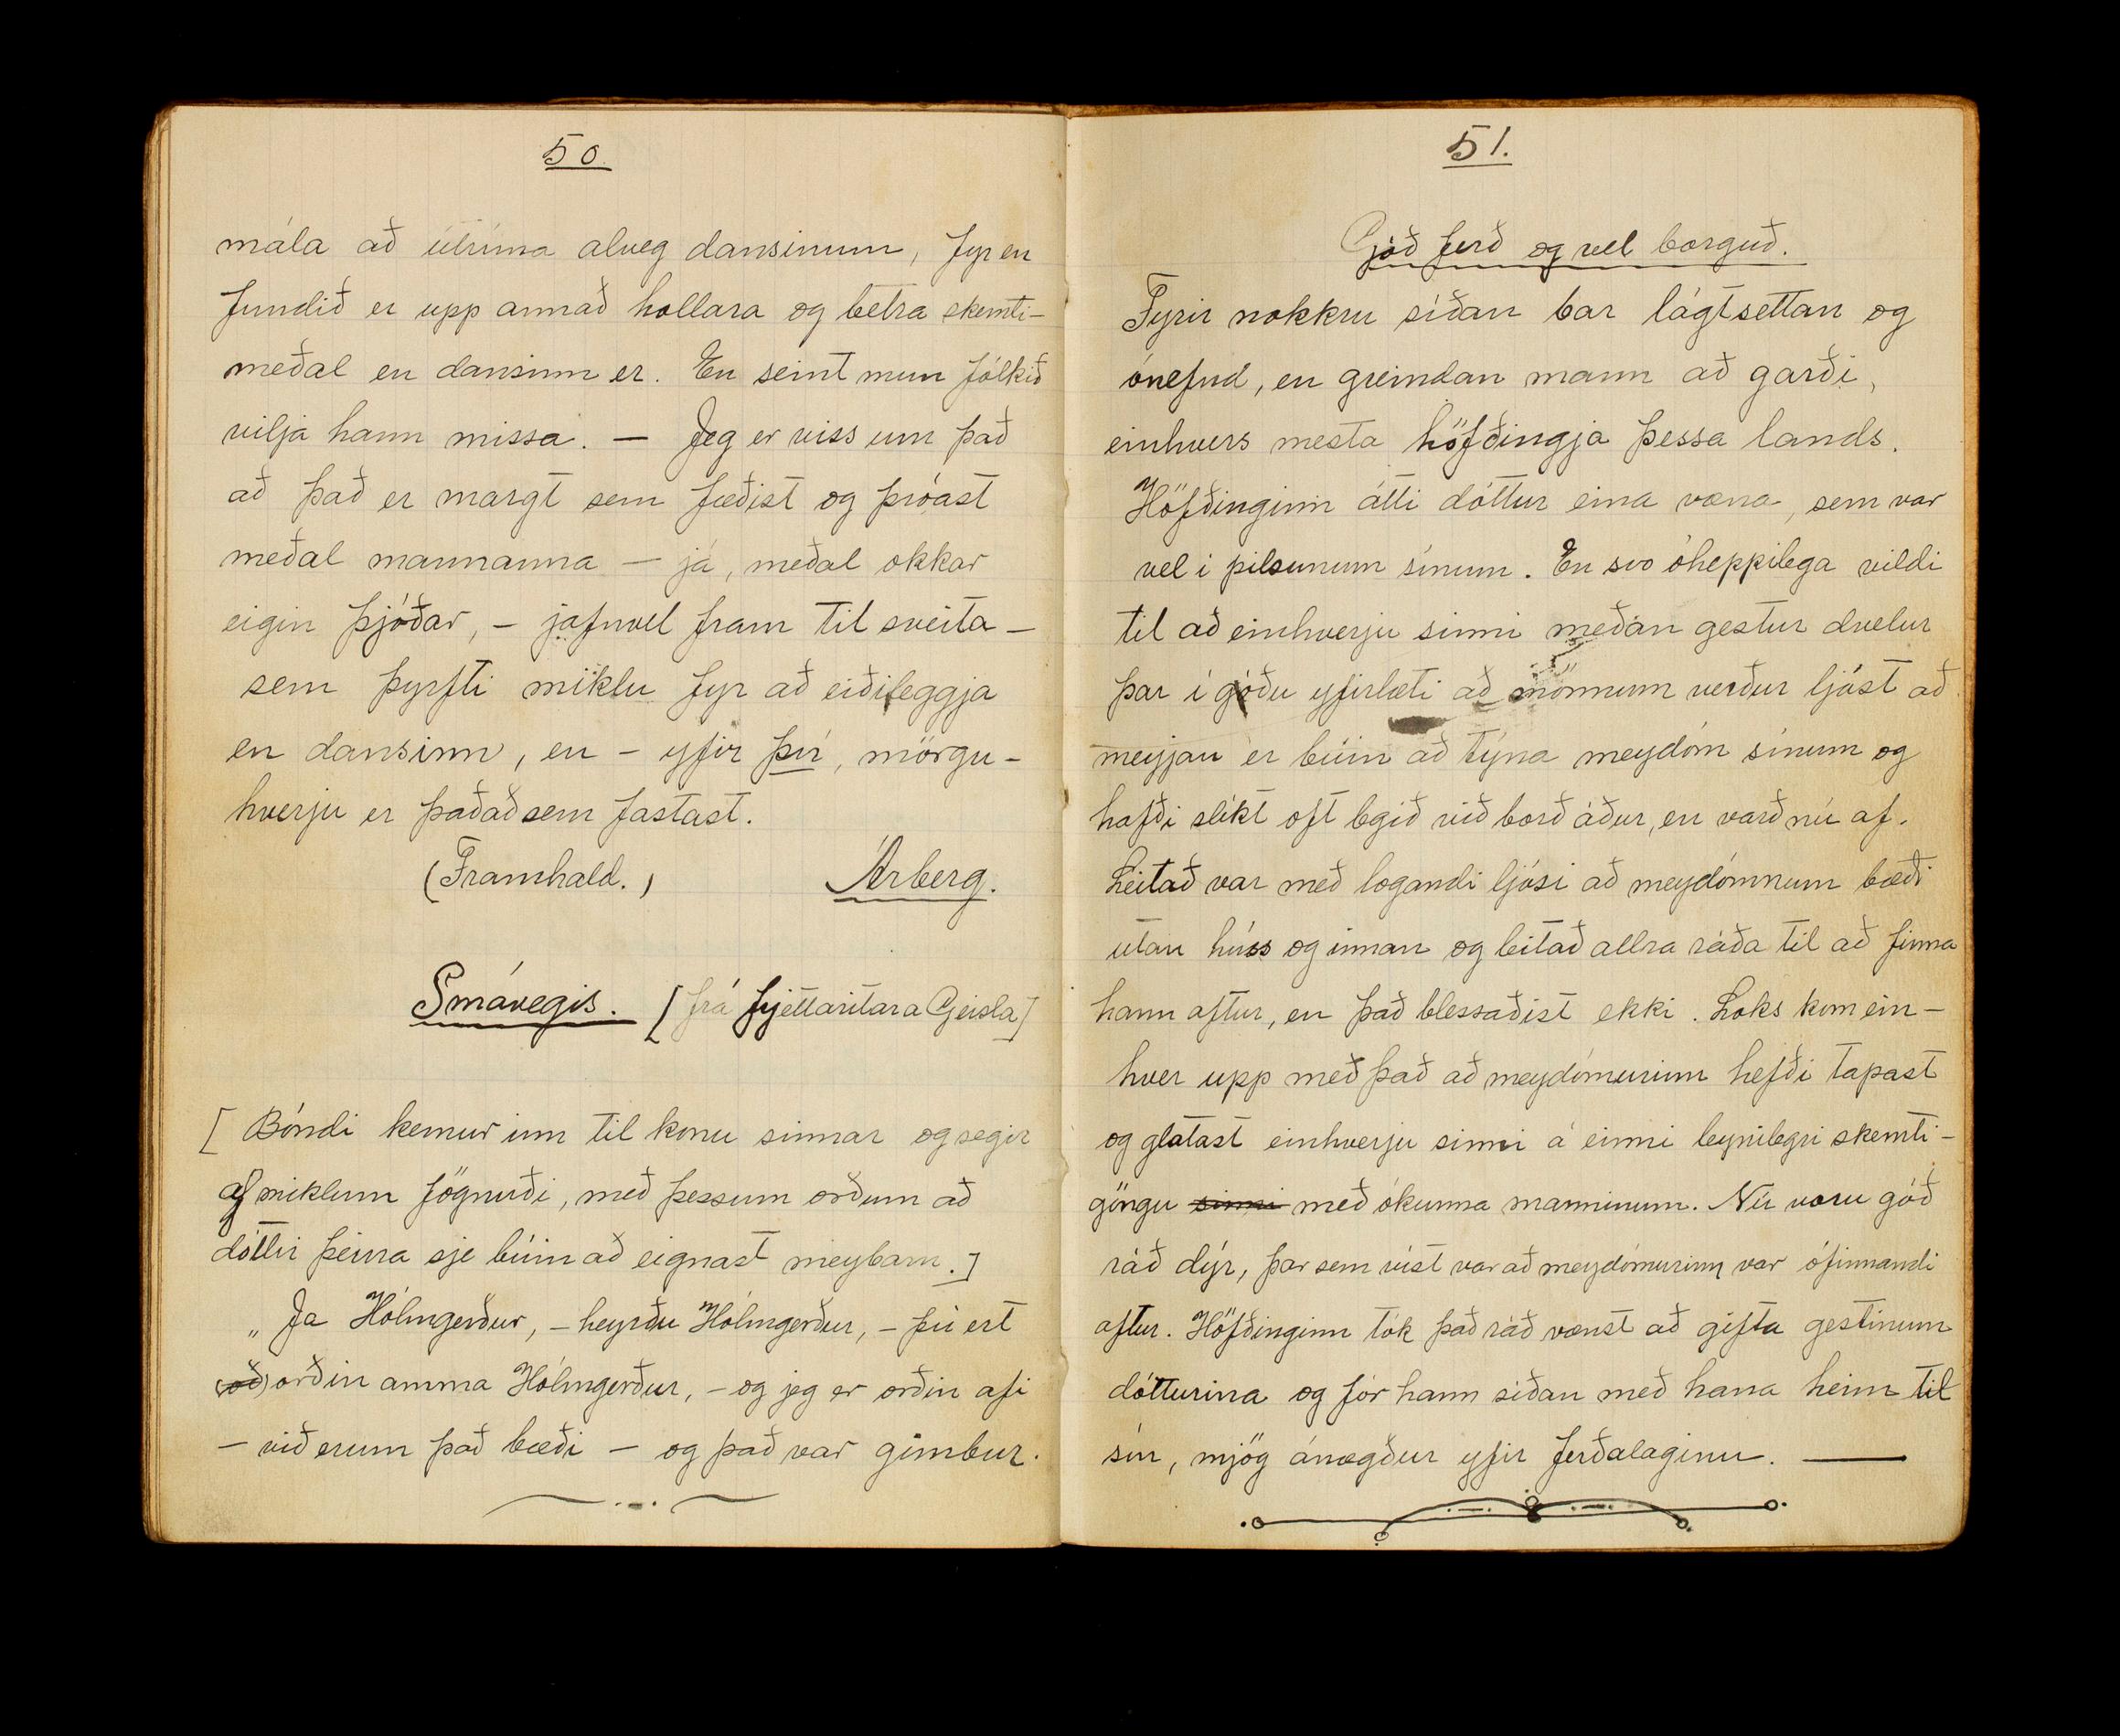 50.
mála að útrýma alveg dansinum, fyr en
fundið er upp annað hollara og betra skemti-
meðal en dansinn er. En seint mun fólkið
vilja hann missa. — Jeg er viss um það
að það er margt sem fæðist og þróast
meðal mannanna — já, meðal okkar
eigin þjóðar, — jafnvel fram til sveita —
sem þyrfti miklu fyr að eiðileggja
en dansinn, en — yfir því, mörgu-
hverju er þaðað sem fastast.
(Framhald.) Árberg.
Smávegis. [frá frjettaritara Geisla]
[Bóndi kemur inn til konu sinnar og segir
af miklum fögnuði, með þessum orðum að
dóttir þeirra sje búin að eignast meybarn.]
„Ja Hólmgerður, — heyrðu Hólmgerður, — þú ert
(oð) orðin amma Hólmgerður, — og jeg er orðin afi
— við erum það bæði — og það var gimbur.
51.
Góð ferð og vel borguð.
Fyrir nokkru síðan bar lágtsettan og
ónefnd, en greindan mann að garði,
einhvers mesta höfðingja þessa lands.
Höfðinginn átti dóttur eina væna, sem var
vel í pilsunum sínum. En svo óheppilega vildi
til að einhverju sinni meðan gestur dvelur
þar í góðu yfirlæti að mönnum verður ljóst að
meyjan er búin að týna meydóm sínum og
hafði slíkt oft legið við borð áður, en varð nú af.
Leitað var með logandi ljósi að meydómnum bæði
utan húss og innan og leitað allra ráða til að finna
hann aftur, en það blessaðist ekki. Loks kom ein-
hver upp með það að meydómurinn hefði tapast
og glatast einhverju sinni á einni leynilegri skemti-
göngu sinni með ókunna manninum. Nú voru góð
ráð dýr, þar sem víst var að meydómurinn var ófinnandi
aftur. Höfðinginn tók það ráð vænst að gifta gestinum
dótturina og fór hann síðan með hana heim til
sín, mjög ánægður yfir ferðalaginu. —